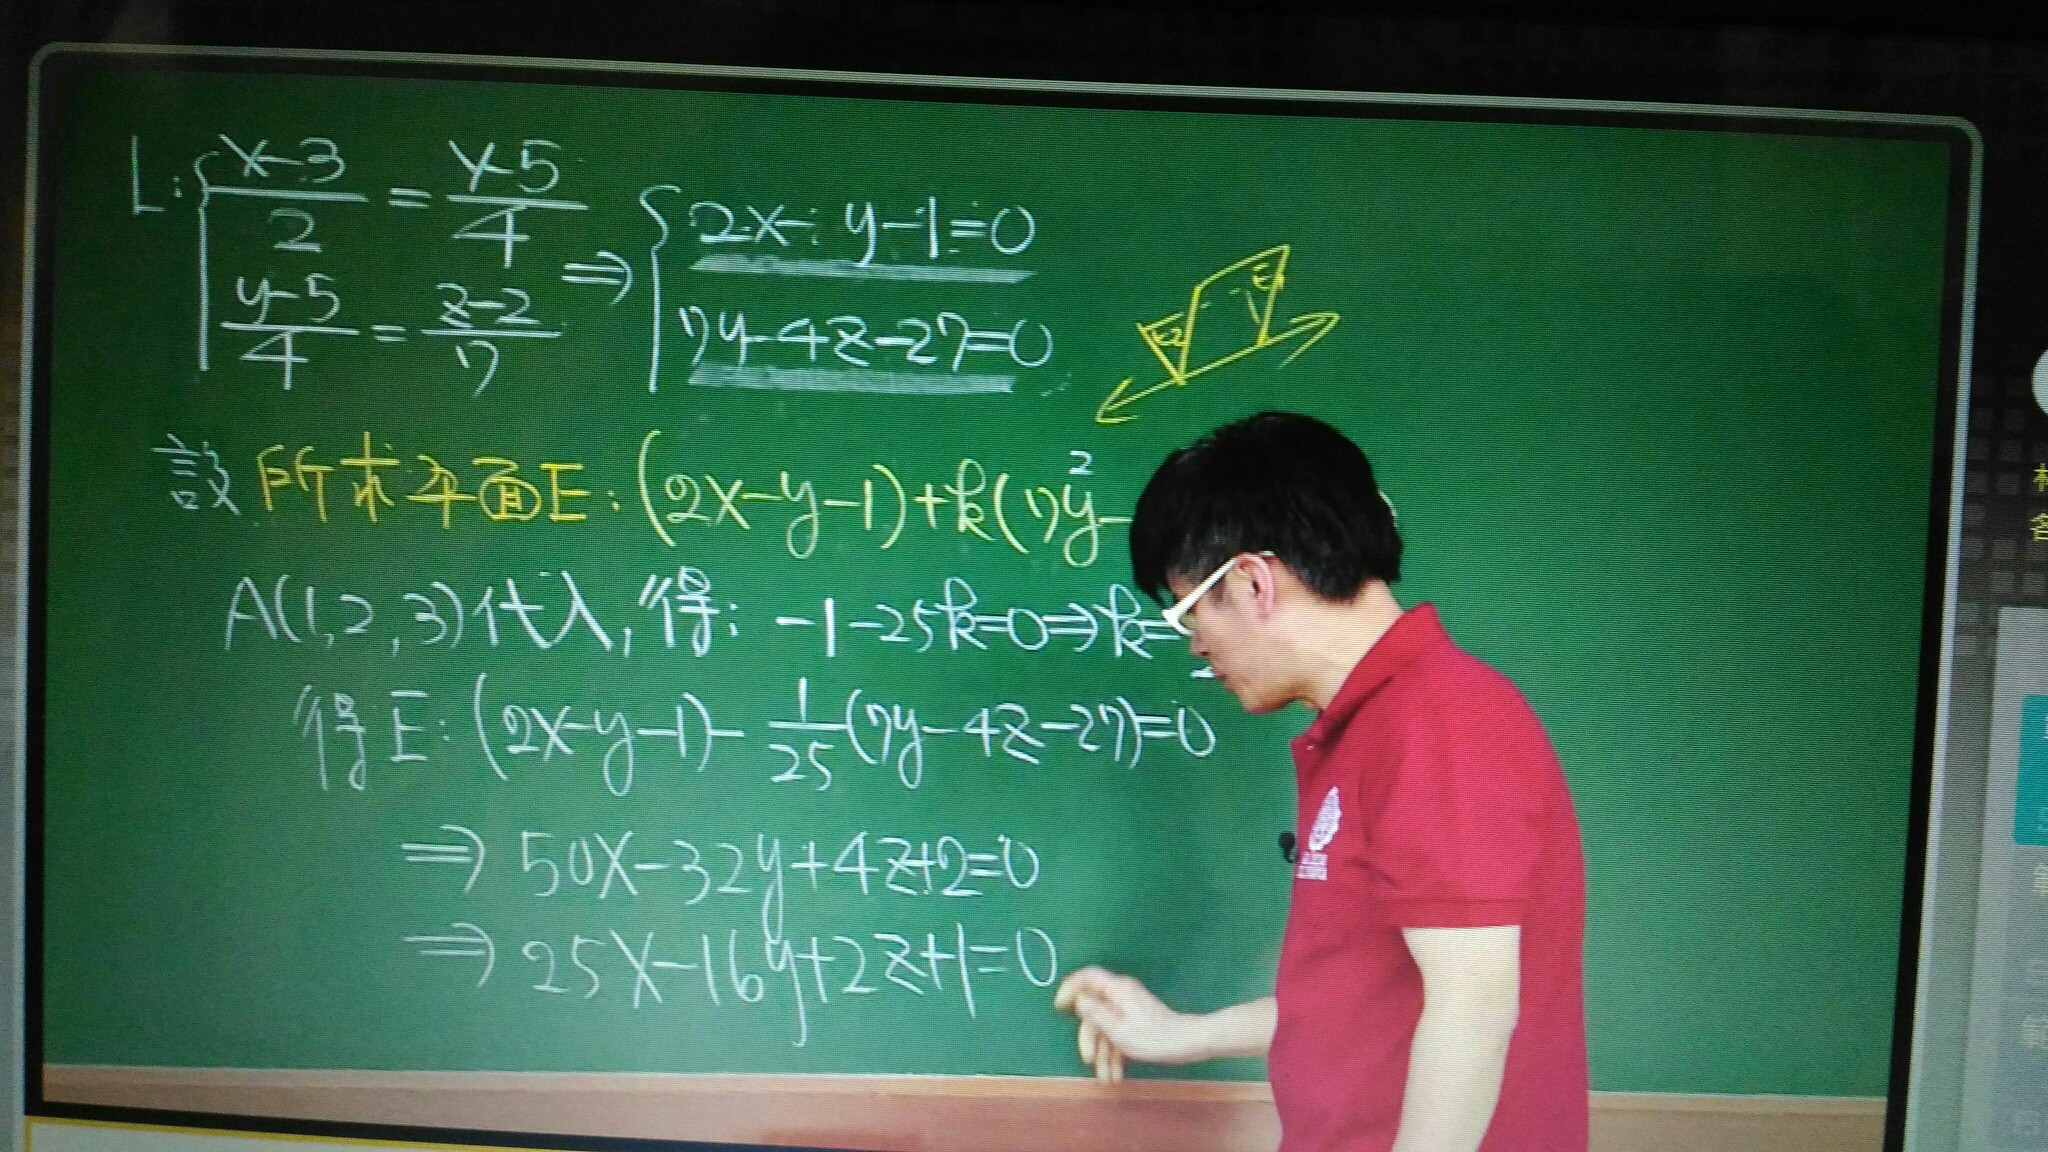 L: { x-3/2 = y-5/4 ⇒ { 2x-y-1=0
y-5/4 = z-2/7 7y-4z-27=0
E2 E1
設所求平面E: (2x-y-1)+k(7y-
2
A(1,2,3)代入,得: -1-25k=0⇒k=
得E: (2x-y-1)-1/25(7y-4z-27)=0
⇒ 50x-32y+4z+2=0
⇒ 25x-16y+2z+1=0